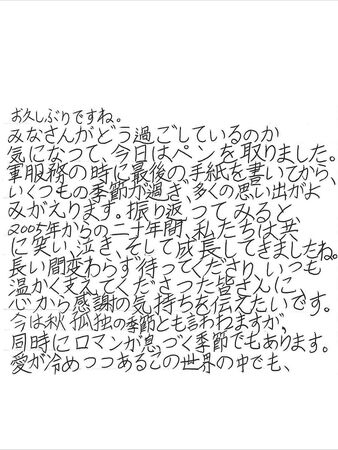 お久しぶりですね。
みなさんがどう過ごしているのか
気になって、今日はペンを取りました。
軍服務の時に最後の手紙を書いてから、
いくつもの季節が過ぎ、多くの思い出がよ
みがえります。振り返ってみると、
2005年からの二十年間、私たちは共
に笑い、泣き、そして成長してきましたね。
長い間変わらず待ってくださり、いつも
温かく支えてくださった皆さんに、
心から感謝の気持ちを伝えたいです。
今は秋、孤独の季節とも言われますが、
同時にロマンが息づく季節でもあります。
愛が冷めつつあるこの世界の中でも、